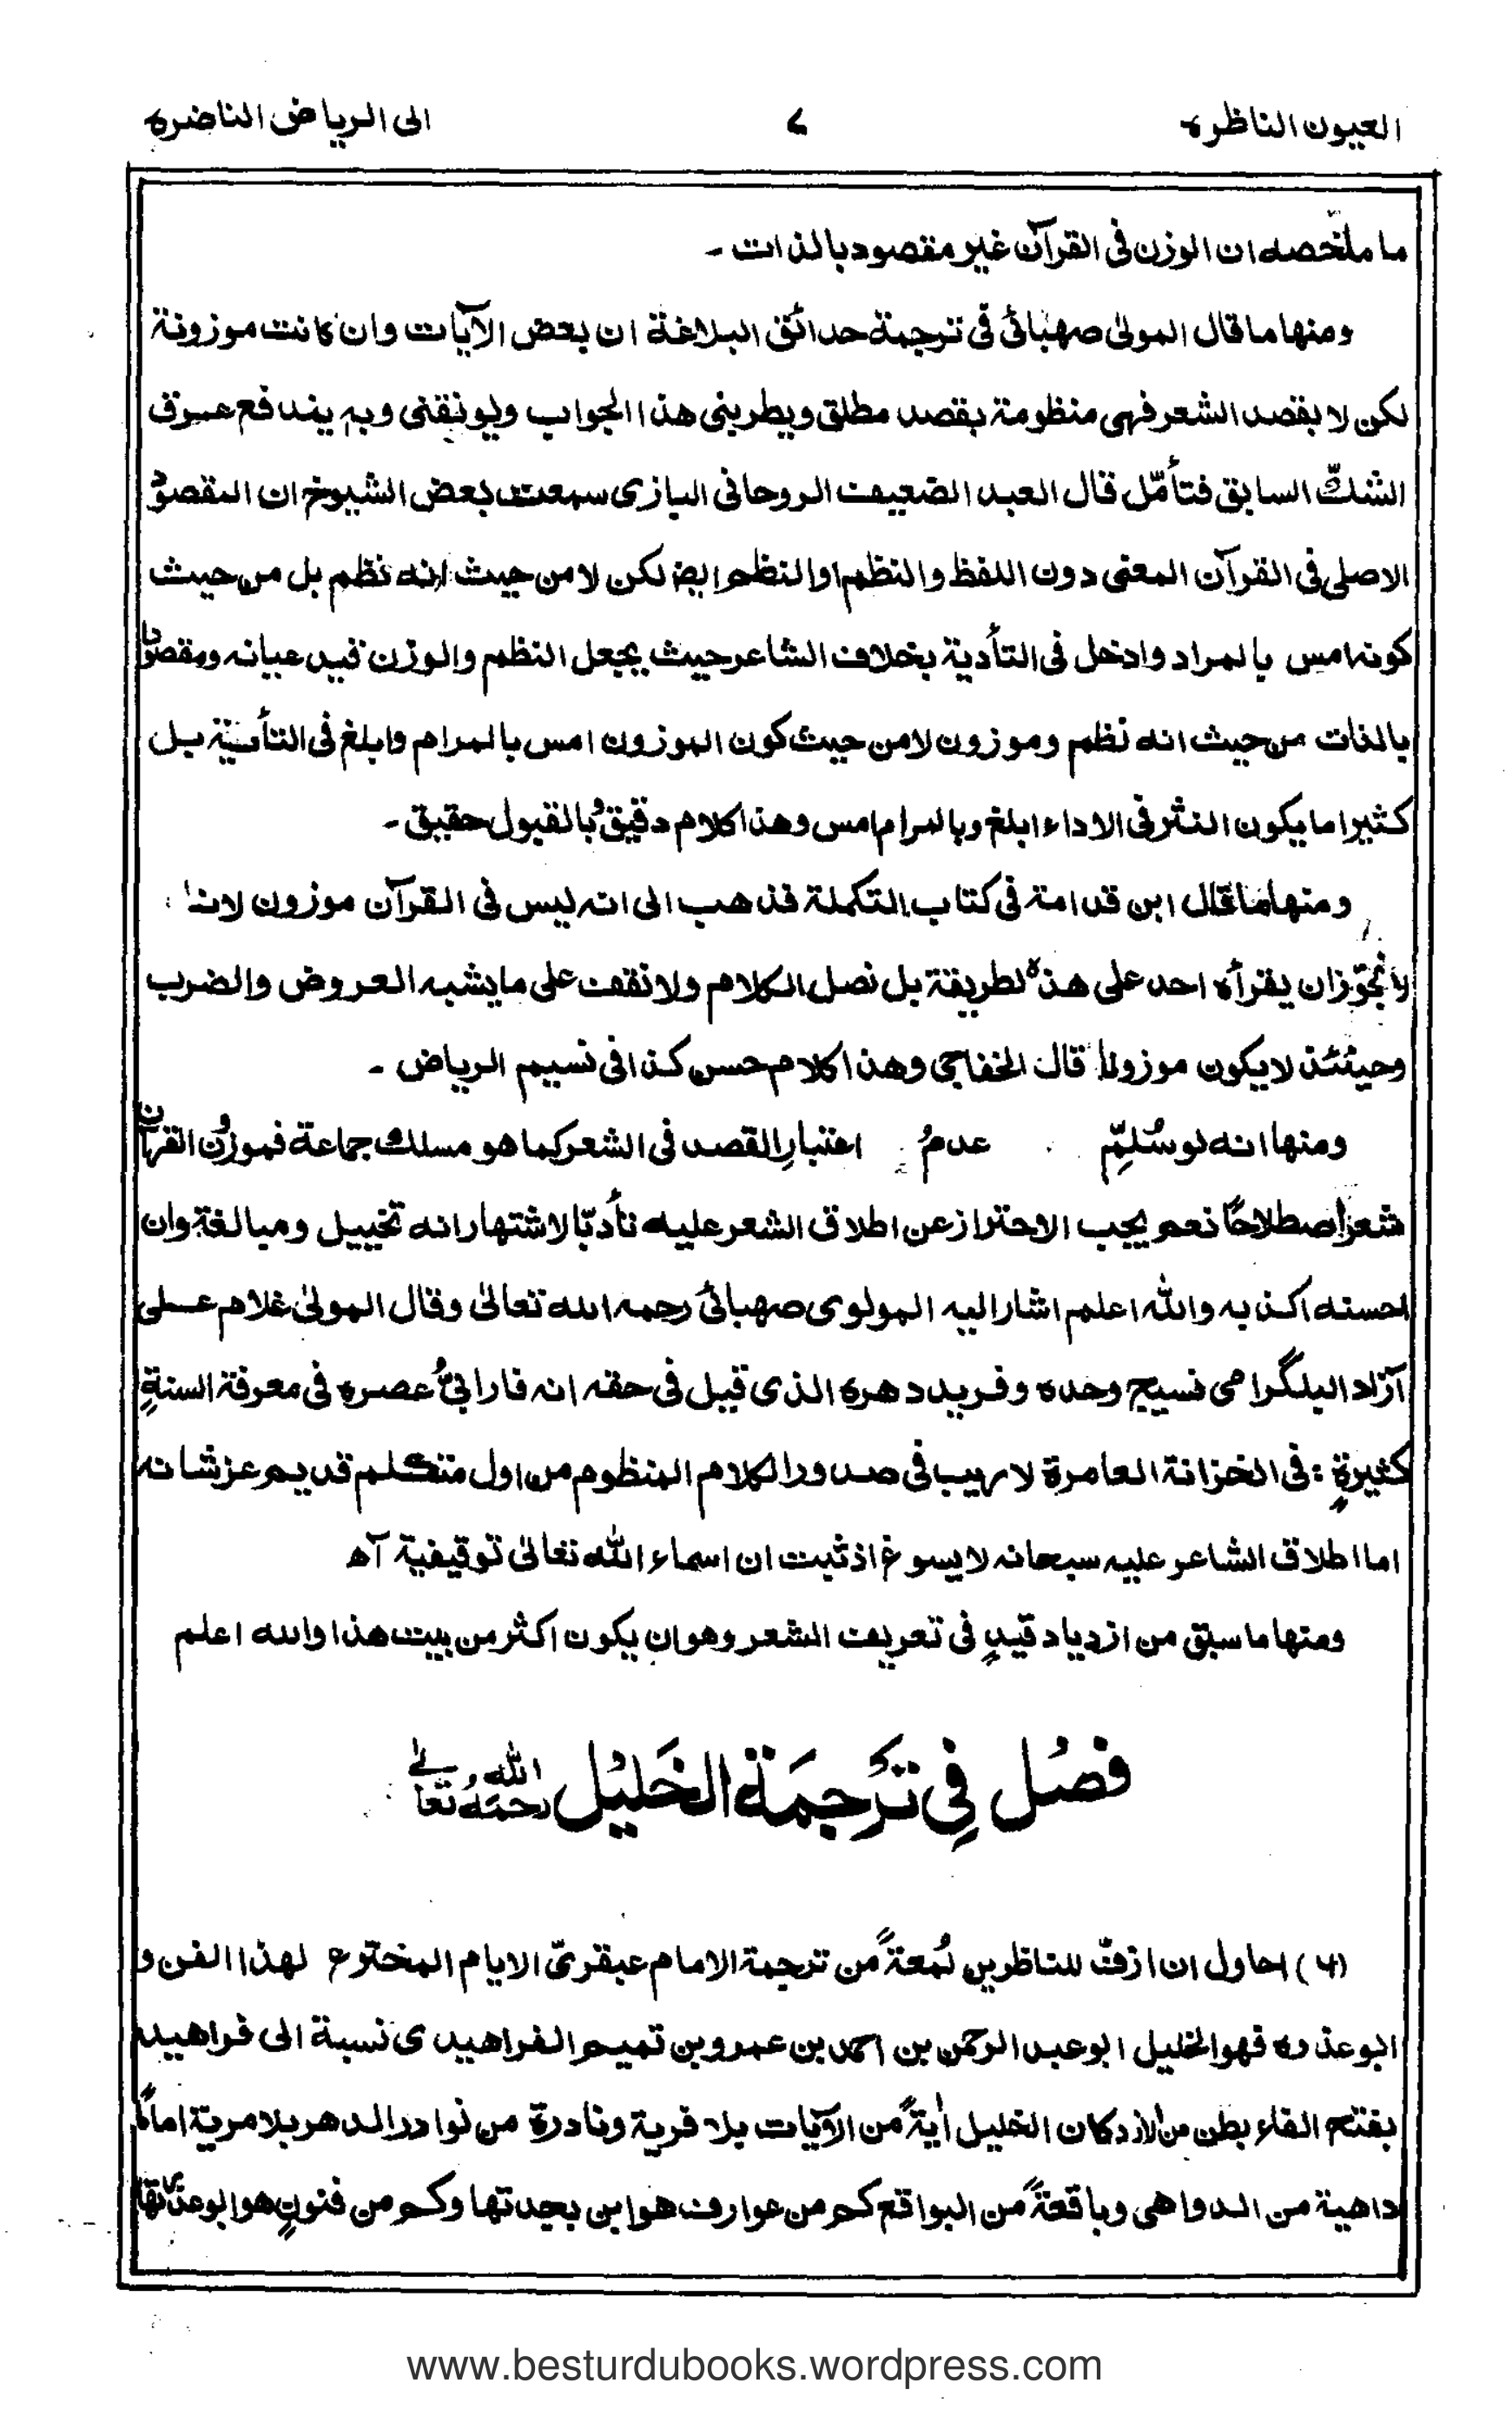 العيون الناظرة ٧ الى الرياض الناضرة
ما ملخّصه ان الوزن فى القرآن غير مقصود بالذات ۔
ومنها ما قال المولىٰ صهبائى فى ترجمة حدائق البلاغة ان بعض الآيات وان كانت موزونة
لكن لا بقصد الشعر فهى منظومة بقصد مطلق ويطربنى هذا الجواب ويونقنى وبه يندفع عرق
الشكّ السابق فتأمّل قال العبد الضعيف الروحانى البازى سمعت بعض الشيوخ ان المقصود
الاصلى فى القرآن المعنى دون اللفظ والنظم اوالنظم ايض لكن لا من حيث انه نظم بل من حيث
كونه امس بالمراد وادخل فى التأدية بخلاف الشاعر حيث يجعل النظم والوزن قيد عيانه ومقصودا
بالذات من حيث انه نظم وموزون لا من حيث كون الموزون امس بالمرام وابلغ فى التأدية بل
كثيرا ما يكون النثر فى الاداء ابلغ وبالمرام امس وهذا كلام دقيقٌ بالقبول حقيق ۔
ومنها ما قال ابن قدامة فى كتاب التكملة فذهب الى انه ليس فى القرآن موزون لانا
لا نجوّز ان يقرأه احد على هذه الطريقة بل نصل الكلام ولا نقف على ما يشبه العروض والضرب
وحينئذ لا يكون موزونا قال الخفاجى وهذا كلام حسن كذا فى نسيم الرياض ۔
ومنها انه لو سُلِّم عدمُ اعتبارِ القصد فى الشعر كما هو مسلك جماعة فموزونُ القرآن
شعرٌ اصطلاحًا نعم يجب الاحتراز عن اطلاق الشعر عليه تأدبًا لاشتهار انه تخييل ومبالغة وان
احسنه اكذبه والله اعلم اشار اليه المولوى صهبائى رحمه الله تعالىٰ وقال المولىٰ غلام على
آزاد البلگرامى نسيج وحده وفريد دهره الذى قيل فى حقه انه فارابىُّ عصره فى معرفة السنةٍ
كثيرةٍ : فى الخزانة العامرة لا ريب فى صدور الكلام المنظوم من اول متكلم قديم عز شانه
اما اطلاق الشاعر عليه سبحانه لا يسوغ اذ ثبت ان اسماء الله تعالىٰ توقيفية آه
ومنها ما سبق من ازدياد قيدٍ فى تعريف الشعر وهو ان يكون اكثر من بيت هذا والله اعلم
فصْل فِي تَرجمَة الخَليْل رحمَهُ اللّٰهُ تعالےٰ
(٤) احاول ان ازفّ للناظرين لُمعةً من ترجمة الامام عبقرىّ الايام المخترع لهذا الفن و
ابو عذره فهو الخليل ابو عبد الرحمٰن بن احمد بن عمرو بن تميم الفراهيدى نسبة الى فراهيد
بفتح الفاء بطن من الازد كان الخليل اٰيةً من الآيات بلا فرية ونادرة من نوادر الدهر بلا مرية امامًا
داهية من الدواهى وباقعةً من البواقع كم من عوارف هو ابن بجدتها وكم من فنونٍ هو ابو عذرتها
www.besturdubooks.wordpress.com